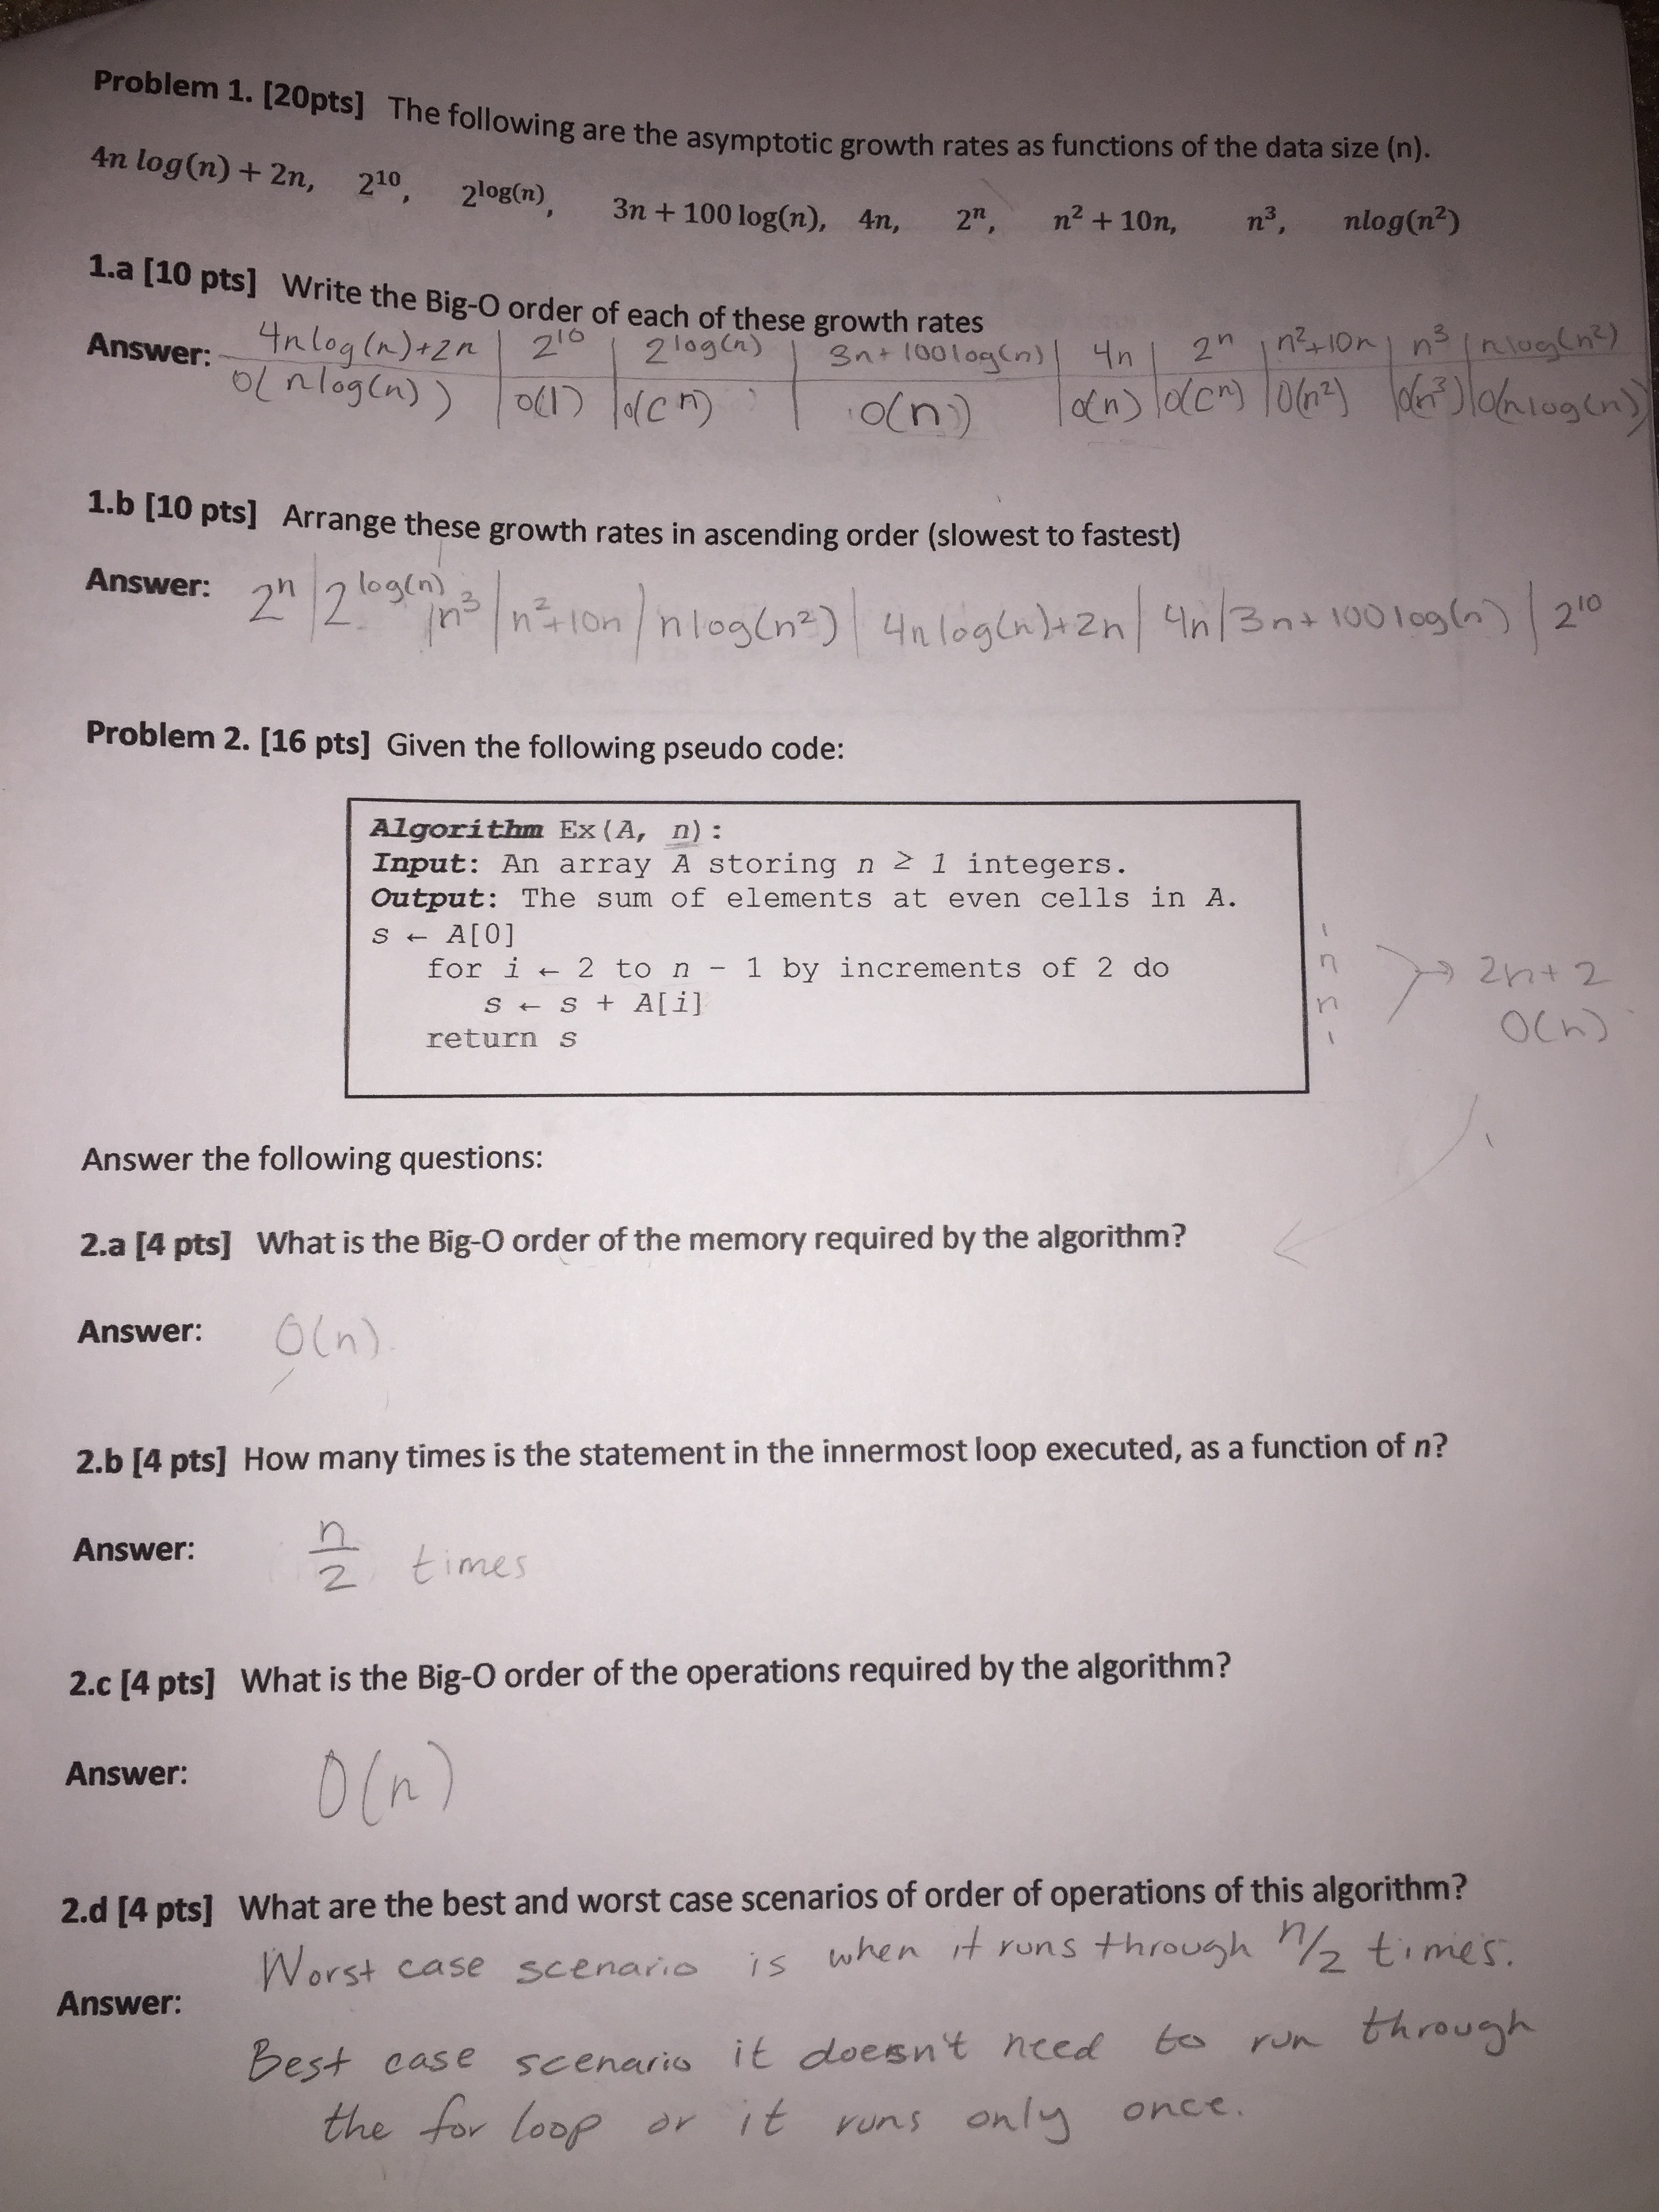 Problem 1. [20pts] The following are the asymptotic growth rates as functions of the data size (n).
4n log(n) + 2n, 2^10, 2^log(n), 3n + 100 log(n), 4n, 2^n, n² + 10n, n³, nlog(n²)
1.a [10 pts] Write the Big-O order of each of these growth rates
Answer: 4nlog(n)+2n | 2^10 | 2^log(n) | 3n+100log(n) | 4n | 2^n | n²+10n | n³ | nlog(n²)
O(nlog(n)) | O(1) | O(c^n) | O(n) | O(n) | O(c^n) | O(n²) | O(n³) | O(nlog(n))
1.b [10 pts] Arrange these growth rates in ascending order (slowest to fastest)
Answer: 2^n | 2^log(n) | n³ | n²+10n | nlog(n²) | 4nlog(n)+2n | 4n | 3n+100log(n) | 2^10
Problem 2. [16 pts] Given the following pseudo code:
Algorithm Ex(A, n):
Input: An array A storing n ≥ 1 integers.
Output: The sum of elements at even cells in A.
s ← A[0] 1
for i ← 2 to n - 1 by increments of 2 do n → 2n+2
s ← s + A[i] n O(n)
return s 1
Answer the following questions:
2.a [4 pts] What is the Big-O order of the memory required by the algorithm?
Answer: O(n).
2.b [4 pts] How many times is the statement in the innermost loop executed, as a function of n?
Answer: n/2 times
2.c [4 pts] What is the Big-O order of the operations required by the algorithm?
Answer: O(n)
2.d [4 pts] What are the best and worst case scenarios of order of operations of this algorithm?
Worst case scenario is when it runs through n/2 times.
Answer:
Best case scenario it doesn't need to run through
the for loop or it runs only once.